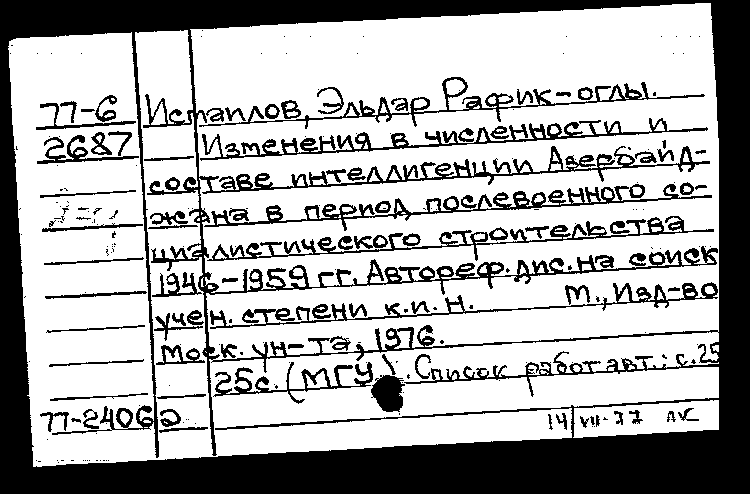 77-6 Исмаилов, Эльдар Рафик-оглы.
2687 Изменения в численности и
составе интеллигенции Азербайд-
жана в период послевоенного со-
циалистического строительства
1946-1959 гг. Автореф. дис. на соиск
учен. степени к.и.н. М., Изд-во
Моск. ун-та, 1976.
25с. (МГУ). Список работ авт.: с.25
77-24062
14/VII-77